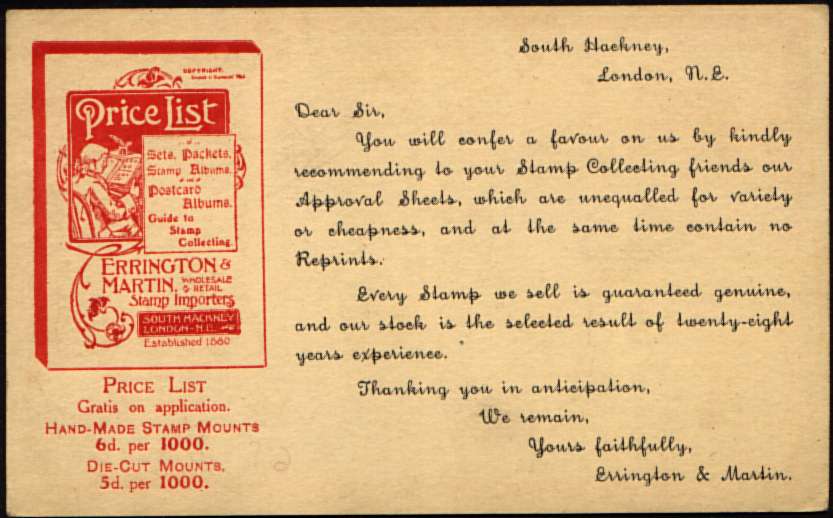 COPYRIGHT.
Price List
of
Sets, Packets,
Stamp Albums,
Postcard
Albums.
Guide to
Stamp
Collecting.
ERRINGTON &
MARTIN.
WHOLESALE
& RETAIL
Stamp Importers
SOUTH HACKNEY
LONDON-N.E.
Established 1880
PRICE LIST
Gratis on application.
HAND-MADE STAMP MOUNTS
6d. per 1000.
DIE-CUT MOUNTS,
5d. per 1000.
South Hackney,
London, N.E.
Dear Sir,
You will confer a favour on us by kindly
recommending to your Stamp Collecting friends our
Approval Sheets, which are unequalled for variety
or cheapness, and at the same time contain no
Reprints.
Every Stamp we sell is guaranteed genuine,
and our stock is the selected result of twenty-eight
years experience.
Thanking you in anticipation,
We remain,
Yours faithfully,
Errington & Martin.